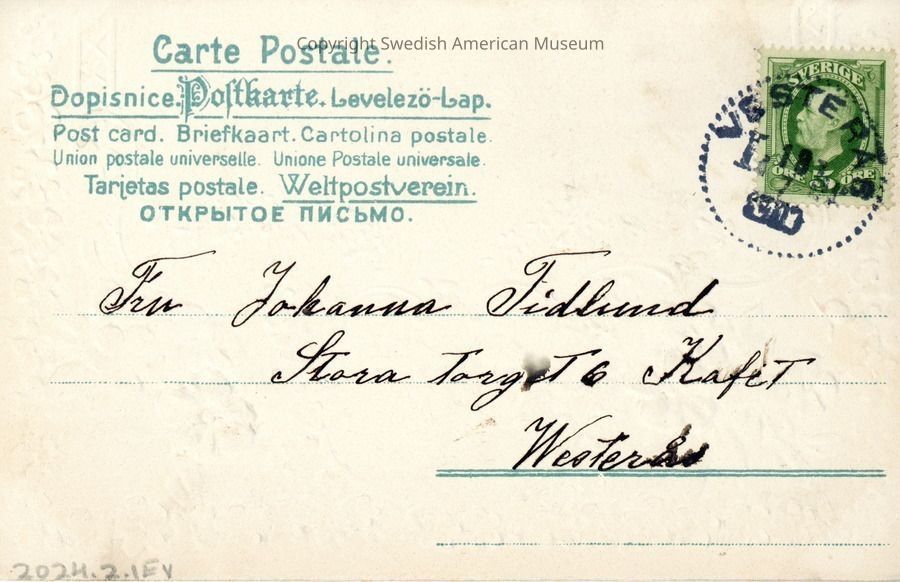 Copyright Swedish American Museum
Carte Postale.
Dopisnice. Postkarte. Levelező-Lap.
Post card. Briefkaart. Cartolina postale.
Union postale universelle. Unione Postale universale.
Tarjetas postale. Weltpostverein.
ОТКРЫТОЕ ПИСЬМО.
SVERIGE
ÖRE ÖRE
VESTERÅS
Fru Johanna Tidlund
Stora torget 6 Kafét
Westerås
2024.2.1EV